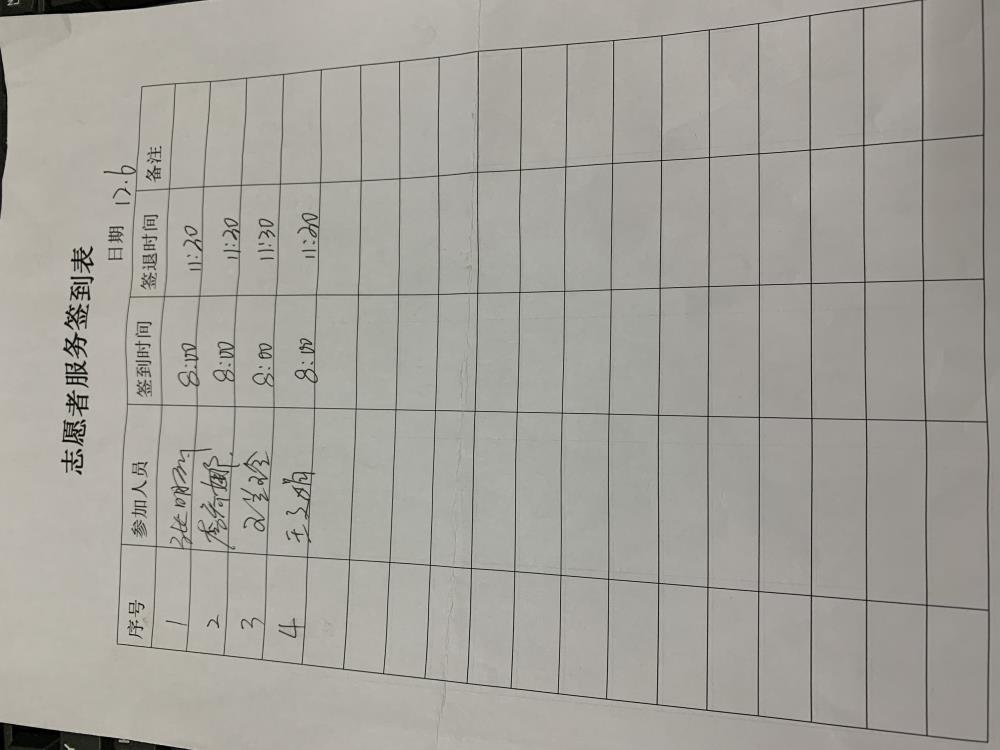 志愿者服务签到表
日期 12.6
序号 参加人员 签到时间 签退时间 备注
1 张明 8:00 11:30
2 李倚娜 8:00 11:30
3 8:00 11:30
4 王 娟 8:00 11:30